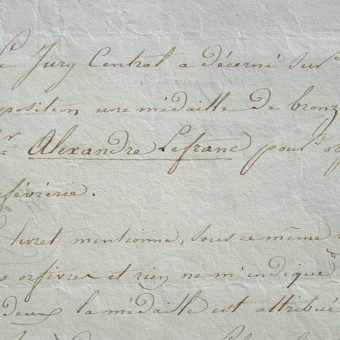 Jury Central a décerné sur
position une médaille de bronz
Alexandre Lefranc pour
févrerie.
livret mentionne, sous ce même
orfèvres et rien ne m'indique
deux la médaille est attribuée